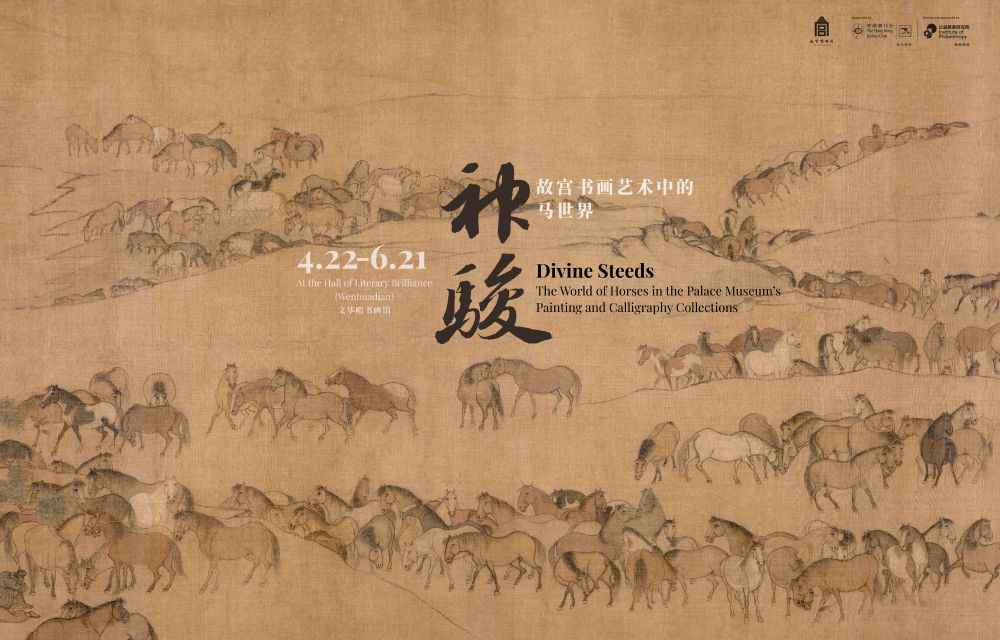 故宫博物院
Supported by
香港賽馬會
The Hong Kong
Jockey Club
Exclusively sponsored by
公益慈善研究院
Institute of
Philanthropy
神
駿
故宫书画艺术中的
马世界
4.22-6.21
At the Hall of Literary Brilliance
(Wenhuadian)
文华殿书画馆
Divine Steeds
The World of Horses in the Palace Museum's
Painting and Calligraphy Collections